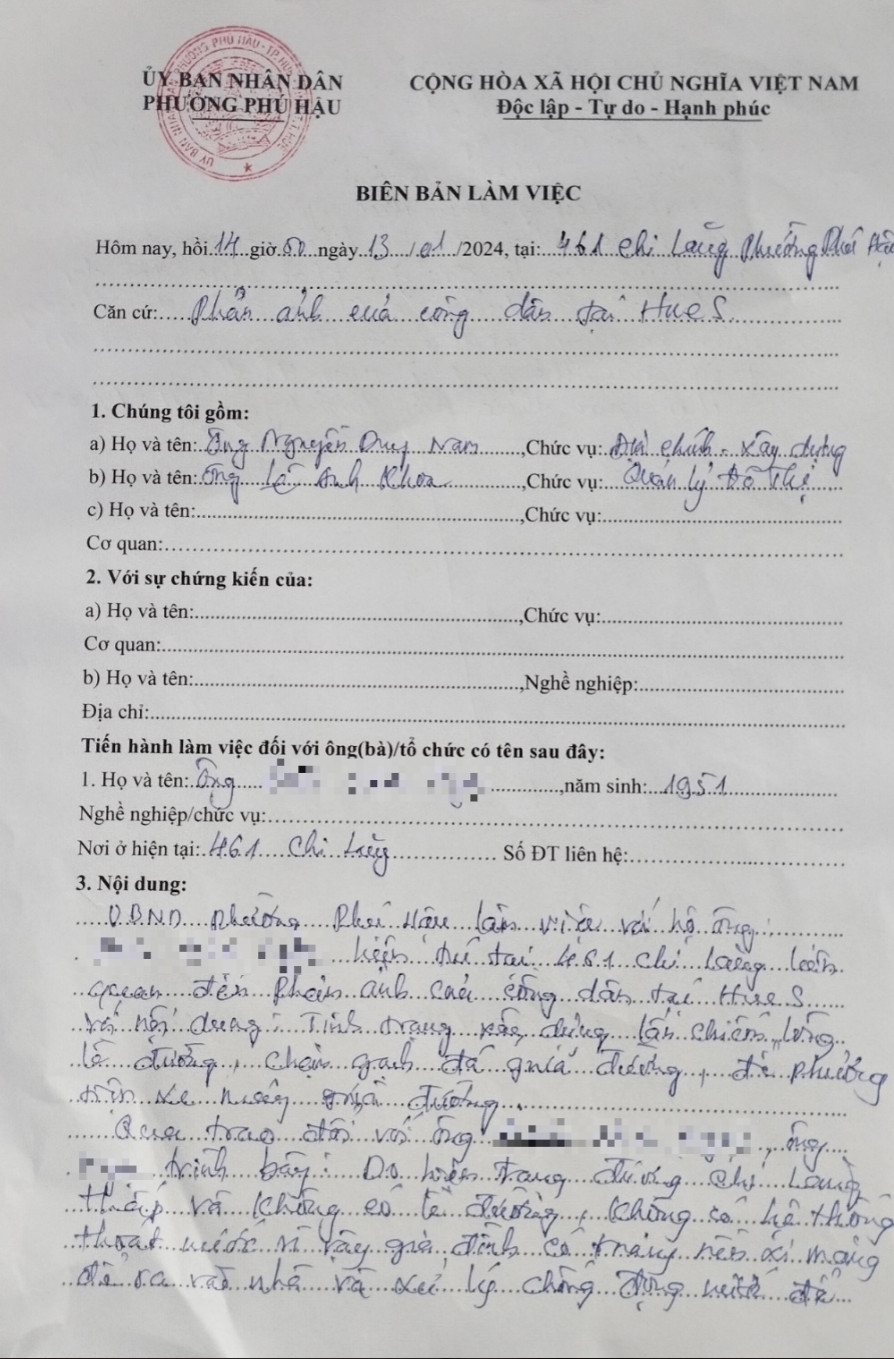 ỦY BAN NHÂN DÂN
PHƯỜNG PHÚ HẬU
CỘNG HÒA XÃ HỘI CHỦ NGHĨA VIỆT NAM
Độc lập - Tự do - Hạnh phúc
BIÊN BẢN LÀM VIỆC
Hôm nay, hồi 14 giờ 00 ngày 13/01/2024, tại: 461 Chi Lăng Phường Phú Hậu
Căn cứ: Phản ảnh của công dân tại Hue S
1. Chúng tôi gồm:
a) Họ và tên: Ông Nguyễn Duy Nam, Chức vụ: Địa chính - Xây dựng
b) Họ và tên: Ông Lê Anh Khoa, Chức vụ: Quản lý Đô Thị
c) Họ và tên:, Chức vụ:
Cơ quan:
2. Với sự chứng kiến của:
a) Họ và tên:, Chức vụ:
Cơ quan:
b) Họ và tên:, Nghề nghiệp:
Địa chỉ:
Tiến hành làm việc đối với ông(bà)/tổ chức có tên sau đây:
1. Họ và tên: Ông, năm sinh: 1951
Nghề nghiệp/chức vụ:
Nơi ở hiện tại: 461 Chi Lăng Số ĐT liên hệ:
3. Nội dung:
UBND phường Phú Hậu làm việc với hộ ông:
hiện trú tại 461 Chi Lăng liên
quan đến phản ảnh của công dân tại Hue S
với nội dung: Tình trạng xây dựng lấn chiếm lòng
lề đường, chặn gạch đá giữa đường, để phương
tiện xe máy giữa đường.
Qua trao đổi với ông, ông
trình bày: Do hiện trạng đường Chi Lăng
thấp và không có lề đường, không có hệ thống
thoát nước vì vậy gia đình có tráng nền xi măng
để ra vào nhà và xử lý chống đọng nước để